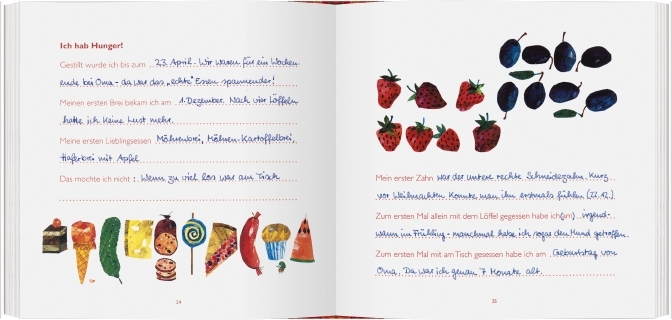 Ich hab Hunger!
Gestillt wurde ich bis zum 23. April. Wir waren für ein Wochen-
ende bei Oma - da war das "echte" Essen spannender!
Meinen ersten Brei bekam ich am 1. Dezember. Nach vier Löffeln
hatte ich keine Lust mehr.
Meine ersten Lieblingsessen Möhrenbrei, Möhren-Kartoffelbrei,
Haferbrei mit Apfel
Das mochte ich nicht: Wenn zu viel los war am Tisch
34
Mein erster Zahn war der untere rechte Schneidezahn. Kurz
vor Weihnachten konnte man ihn erstmals fühlen (22.12.)
Zum ersten Mal allein mit dem Löffel gegessen habe ich (am) irgend-
wann im Frühling - manchmal habe ich sogar den Mund getroffen.
Zum ersten Mal mit am Tisch gesessen habe ich am Geburtstag von
Oma. Da war ich genau 7 Monate alt.
35